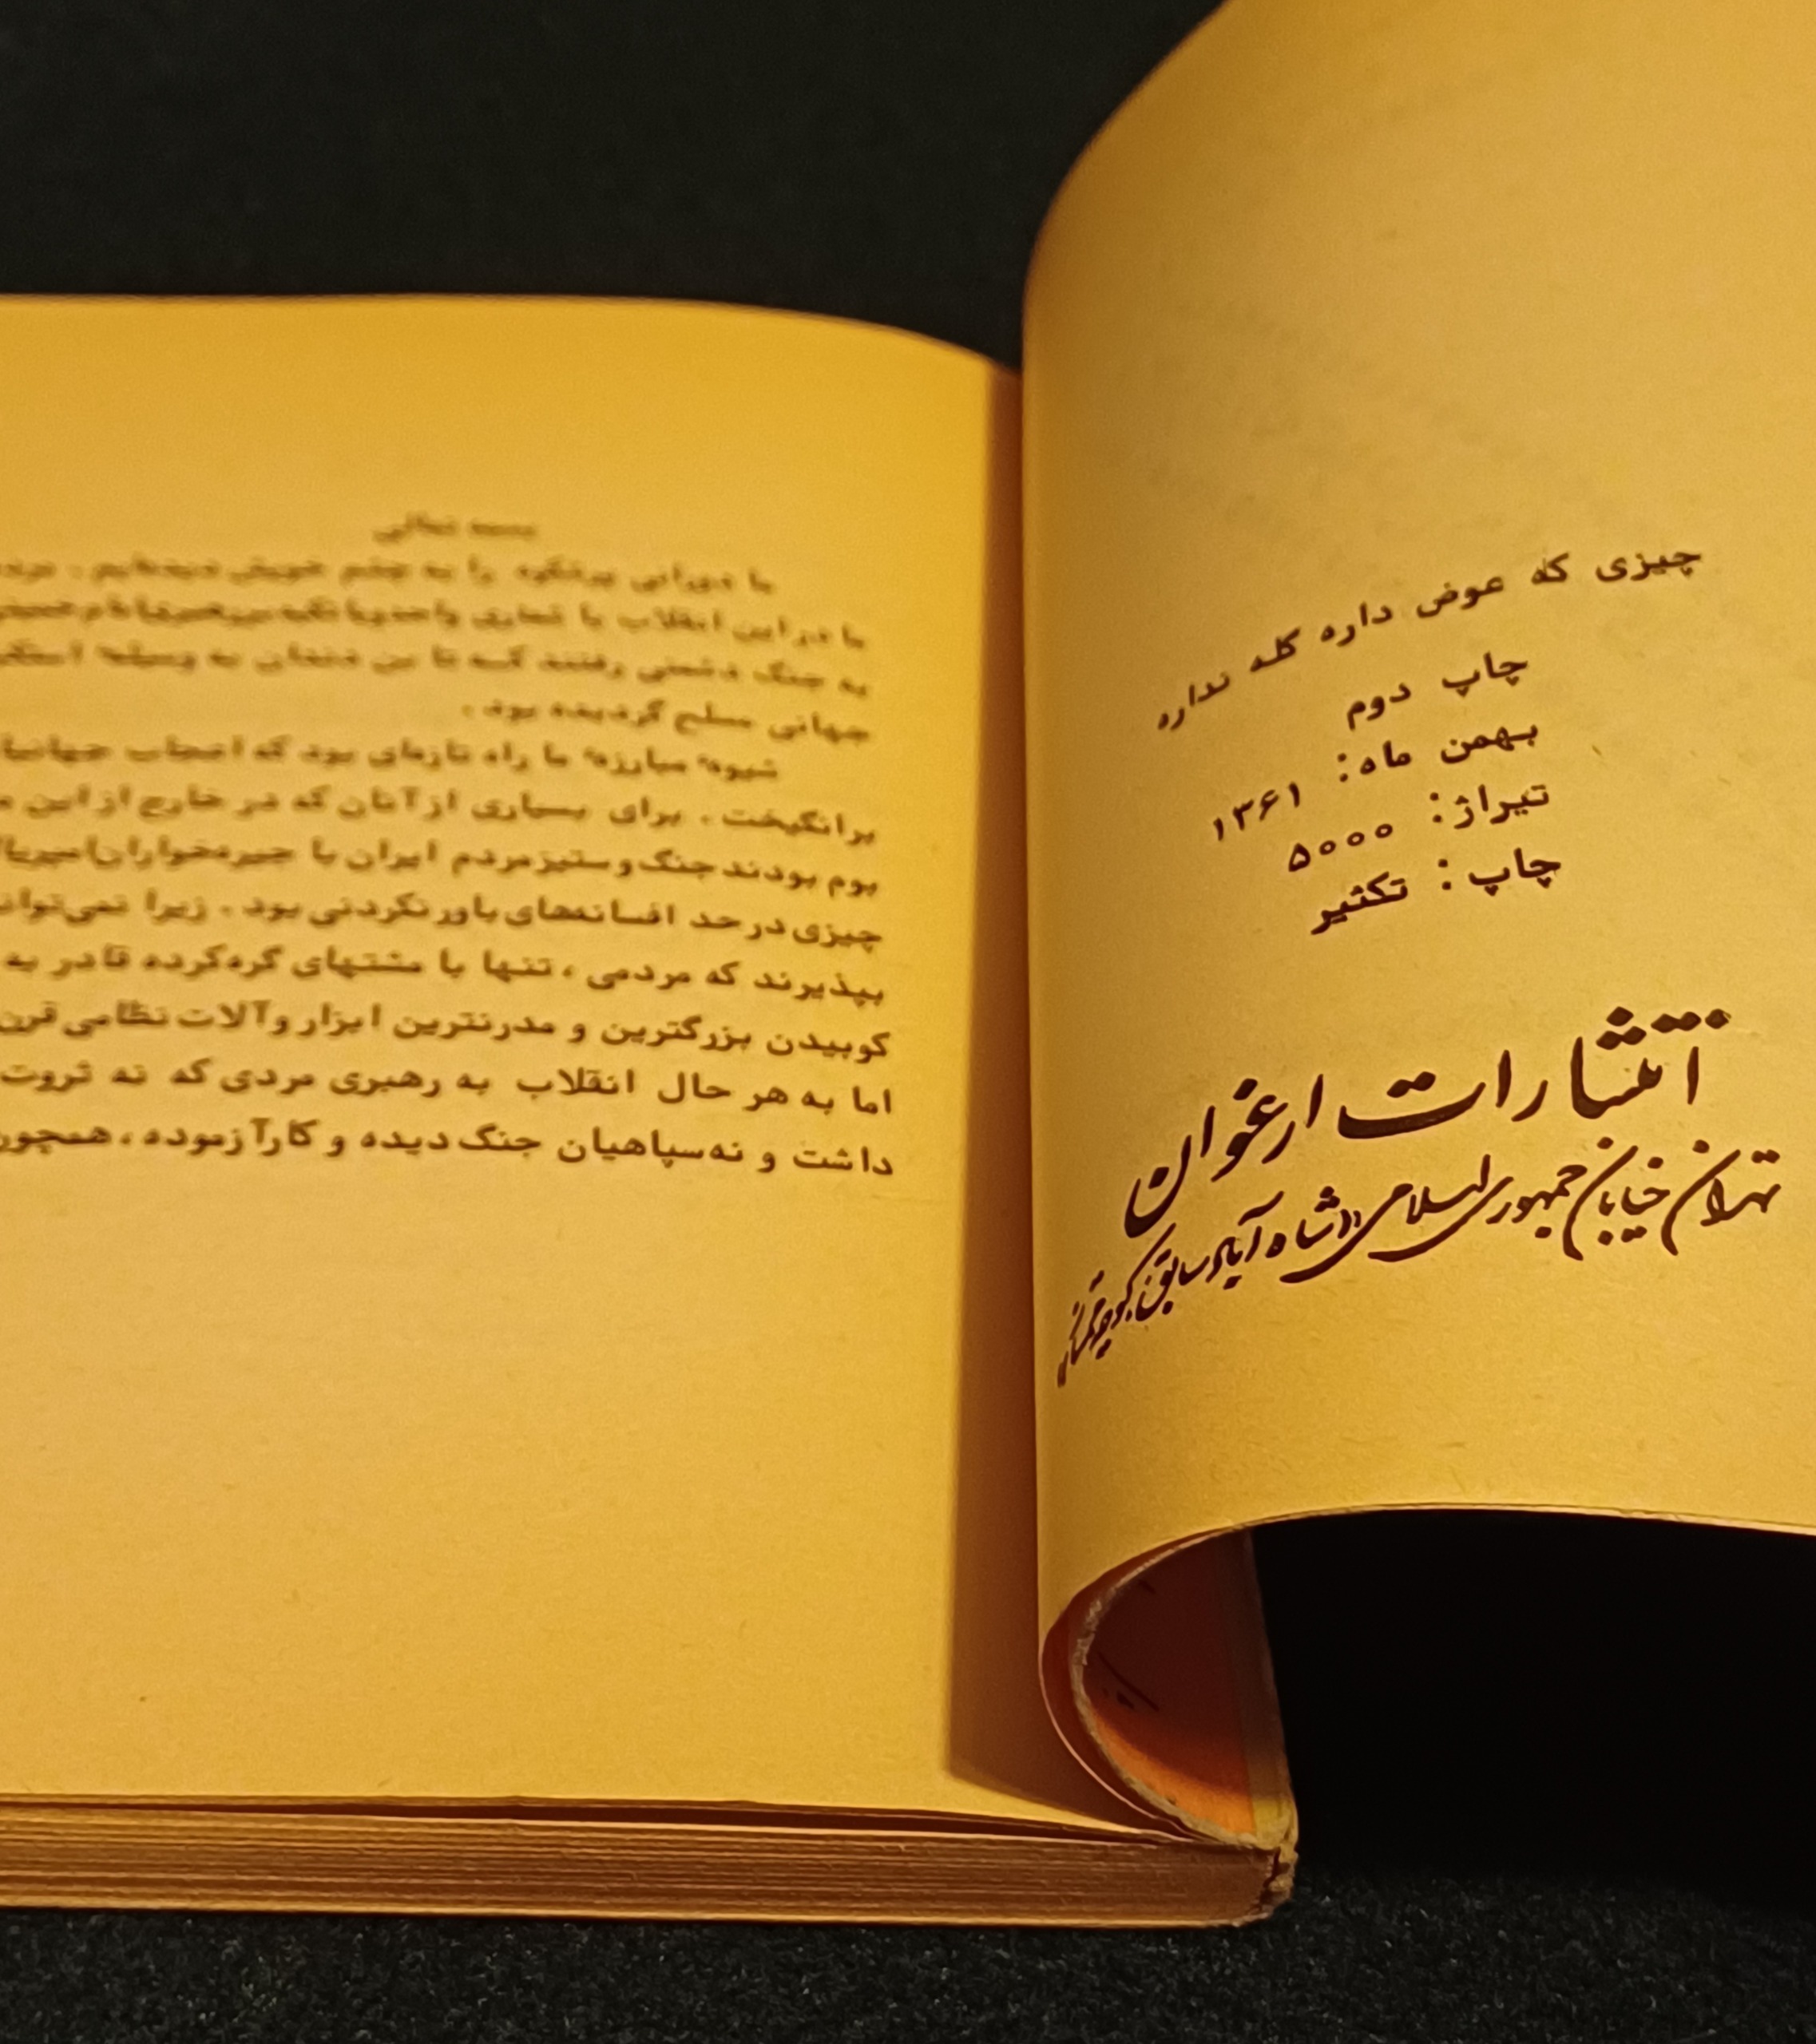 چیزی که عوض داره گله نداره
چاپ دوم
بهمن ماه: ۱۳۶۱
تیراژ: ۵۰۰۰
چاپ: تکثیر
انتشارات ارغوان
تهران خیابان جمهوری اسلامی «شاه آباد سابق» کوچه
بسمه تعالی
ما دورانی پرشکوه را به چشم خویش دیده‌ایم .
ما در این انقلاب با شعاری واحد و با تکیه بر رهبریها امام خمینی
به جنگ دشمنی رفتند کــه تا بن دندان به وسیلهٔ
جهانی مسلح گردیده بود .
شیوهٔ مبارزهٔ ما راه تازه‌ای بود که اعجاب
برانگیخت . برای بسیاری از آنان که در خارج از این
بوم بودند جنگ و ستیز مردم ایران با جیره‌خواران
چیزی در حد افسانه‌های باور نکردنی بود . زیرا
بپذیرند که مردمی ، تنها با مشتهای گره کرده قادر به
کوبیدن بزرگترین و مدرنترین ابزار و آلات نظامی قرن
اما به هر حال انقلاب به رهبری مردی که نه ثروت
داشت و نه سپاهیان جنگ دیده و کارآزموده ، همچون